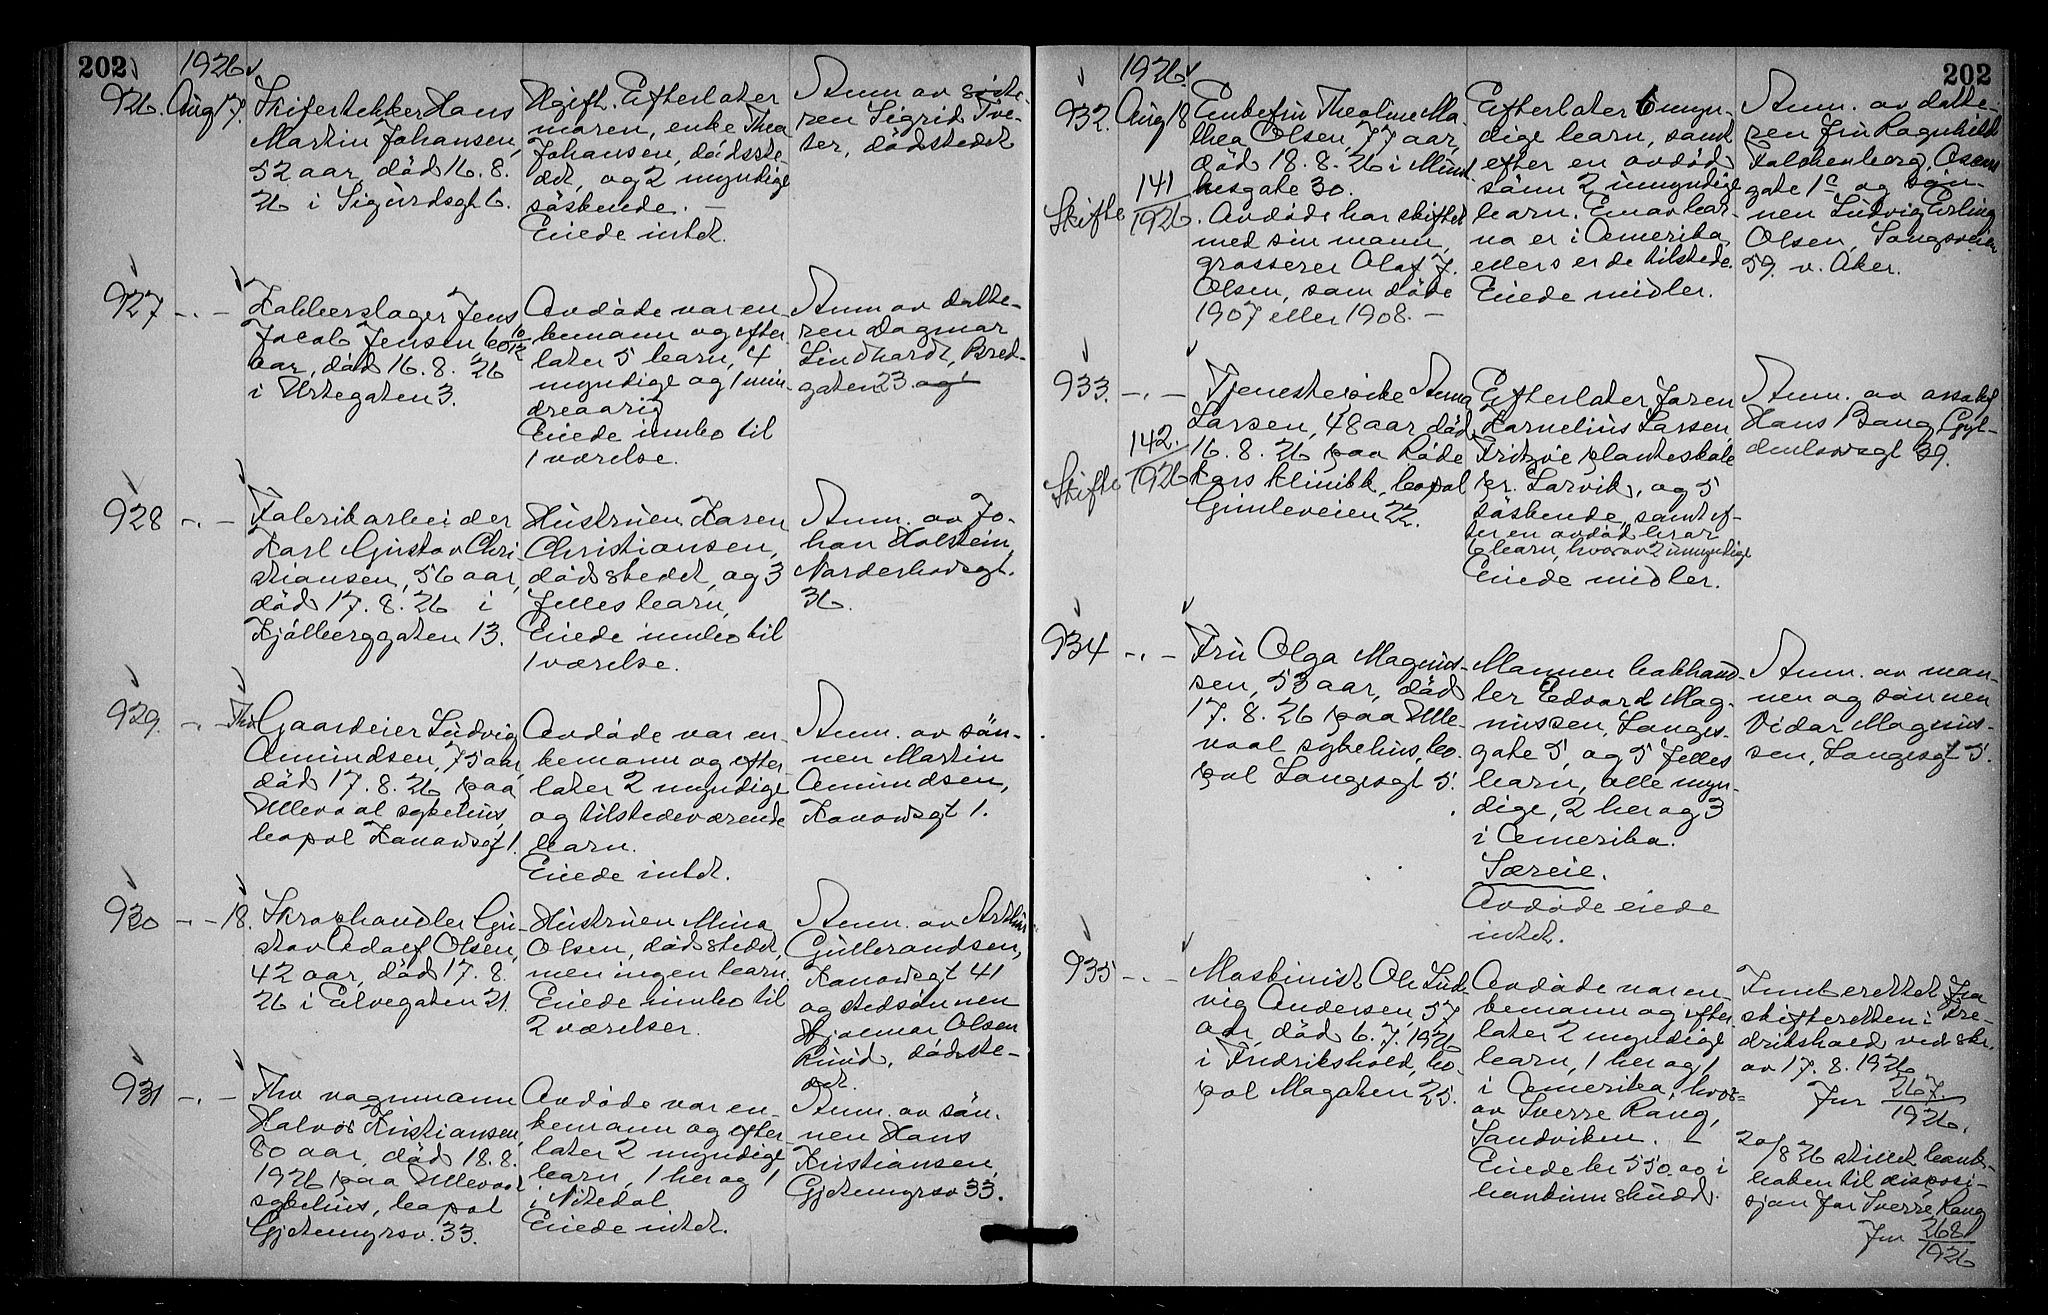 202
1926
926. Aug 17.
Skifertekker Hans
Martin Johansen,
52 aar, død 16.8.
26 i Sigurdsgt 6.
Ugift. Efterlater
moren, enke Thea
Johansen, dødsste-
det, og 2 myndige
søskende. —
Eiede intet.
Anm. av søste-
ren Sigrid Tve-
ter, dødsstedet
927 -.-
Kobberslager Jens
Jacob Jensen 60 10/12
aar, død 16.8.26
i Urtegaten 3.
Avdøde var en-
kemann og efter-
later 5 barn, 4
myndige og 1 min-
dreaarig
Eiede innbo til
1 værelse.
Anm av datte-
ren Dagmar
Lindhardt, Bred-
gaten 23 og
928 -.-
Fabrikarbeider
Karl Gustav Chri
stiansen, 56 aar,
død 17.8.26 i
Kjølberggaten 13.
Hustruen Karen
Christiansen,
dødsstedet, og 3
felles barn,
Eiede innbo til
1 værelse.
Anm. av Jo-
han Holstein,
Norderhovsgt.
36.
929. -.-
Thv Gaardeier Ludvig
Amundsen, 75 aar,
død 17.8.26 paa
Ullevaal sykehus,
bopæl Kanowsgt 1.
Avdøde var en-
kemann og efter-
later 2 myndige
og tilstedeværende
barn.
Eiede intet.
Anm. av søn-
nen Martin
Amundsen,
Kanowsgt 1.
930 -.- 18.
Skraphandler Gu-
stav Adolf Olsen,
42 aar, død 17.8.
26 i Elvegaten 21.
Hustruen Mina
Olsen, dødsstedet,
men ingen barn.
Eiede innbo til
2 værelser.
Anm. av Arthur
Gulbrandsen,
Kanowsgt 41
og stedsønnen
Hjalmar Olsen
Ruud, dødsste-
det.
931 -.-
Fhv vognmann
Halvor Kristiansen,
80 aar, død 18.8.
1926 paa Ullevaal
sykehus, bopæl
Gjetemyrsv. 33.
Avdøde var en-
kemann og efter-
later 2 myndige
barn, 1 her og 1
i Nitedal
Eiede intet.
Anm. av søn-
nen Hans
Kristiansen,
Gjetemyrsv 33.
202
1926.
932. Aug 18
Skifte 141/1926
Enkefru Theoline Ma-
thea Olsen, 77 aar,
død 18.8.26 i Munk
hesgate 30.
Avdøde har skiftet
med sin mann,
grosserer Olaf J.
Olsen, som døde
1907 eller 1908. —
Efterlater 6 myn-
dige barn, samt
efter en avdød
sønn 2 umyndige
barn. En av bar-
na er i Amerika
ellers er de tilstede.
Eiede midler.
Anm. av datte-
ren fru Ragnhild
Falchenberg, Oscars
gate 1c og søn-
nen Ludvig Erling
Olsen, Sognsveien
59 v. Aker.
933. -.-
Skifte 142./1926
Tjenestepike Anna
Larsen, 48 aar død
16.8.26 paa Røde
Kors Klinikk, bopæl
Gimleveien 22.
Efterlater faren
Karnelius Larsen,
Fritzøe planteskole
pr. Larvik, og 5
søskende, samt ef-
ter en avdød bror
6 barn, hvorav 2 umyndige
Eiede midler.
Anm. av avsakf
Hans Bang, Gyl-
denløvesgt 39.
934 -.-
Fru Olga Magnus-
sen, 53 aar, død
17.8.26 paa Ulle-
vaal sykehus, bo-
pæl Langesgt 5.
Mannen bokhand-
ler Edvard Mag-
nussen, Langes-
gate 5, og 5 felles
barn, alle myn-
dige, 2 her og 3
i Amerika.
Særeie.
Avdøde eiede
intet.
Anm. av man-
nen og sønnen
Vidar Magnus-
sen, Langesgt 5.
935 -.-
Maskinist Ole Lud-
vig Andersen, 57
aar, død 6.7.1926
i Fredrikshald, bo-
pæl Magaten 25.
Avdøde var en-
kemann og efter-
later 2 myndige
barn, 1 her og 1
i Amerika, hvor-
av Sverre Rang,
Sandviken. —
Eiede kr 550.00 i
bankinnskudd.
Innberettet fra
skifteretten i Fre-
drikshald ved skr.
av 17.8.1926
Jnr 267./1926.
20/8 26 stillet bank-
boken til disposi-
sjon for Sverre Rang
Jnr 268/1926